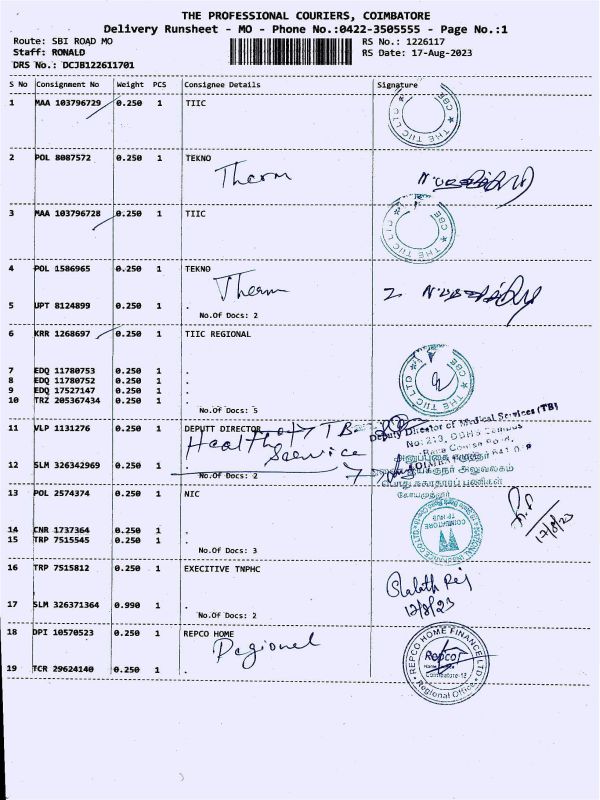 THE PROFESSIONAL COURIERS, COIMBATORE
Delivery Runsheet - MO - Phone No.:0422-3505555 - Page No.:1
Route: SBI ROAD MO RS No.: 1226117
Staff: RONALD RS Date: 17-Aug-2023
DRS No.: DCJB122611701
S No Consignment No Weight PCS Consignee Details Signature
1 MAA 103796729 0.250 1 TIIC
THE TIIC LTD CBE
2 POL 8087572 0.250 1 TEKNO
Therm
3 MAA 103796728 0.250 1 TIIC
THE TIIC LTD CBE
4 POL 1586965 0.250 1 TEKNO
Therm
5 UPT 8124899 0.250 1 .
No.Of Docs: 2
6 KRR 1268697 0.250 1 TIIC REGIONAL
THE TIIC LTD CBE
7 EDQ 11780753 0.250 1 .
8 EDQ 11780752 0.250 1 .
9 EDQ 17527147 0.250 1 .
10 TRZ 205367434 0.250 1 .
No.Of Docs: 5
11 VLP 1131276 0.250 1 DEPUTT DIRECTOR
Health TB
Service
Deputy Director of Medical Services (TB)
No: 213,
Race Course Road,
12 SLM 326342969 0.250 1 .
No.Of Docs: 2
கோயமுத்தூர்
13 POL 2574374 0.250 1 NIC
COIMBATORE
17/8/23
14 CNR 1737364 0.250 1 .
15 TRP 7515545 0.250 1 .
No.Of Docs: 3
16 TRP 7515812 0.250 1 EXECITIVE TNPHC
17/8/23
17 SLM 326371364 0.990 1 .
No.Of Docs: 2
18 DPI 10570523 0.250 1 REPCO HOME
Regional
REPCO HOME FINANCE LTD
Repco
Coimbatore-18
Regional Office
19 TCR 29624140 0.250 1 .